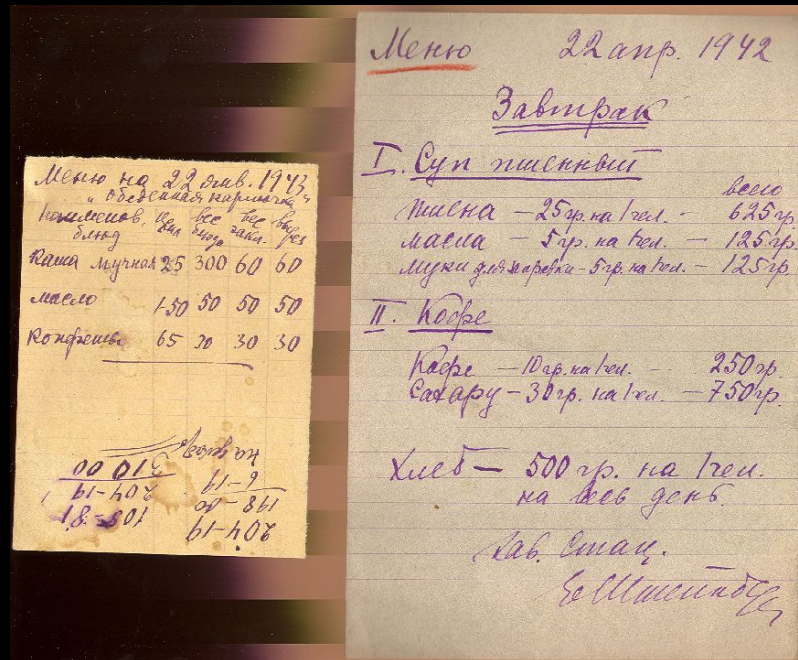 Меню на 22 янв. 1943
"обеденная карточка"
Наименов. цена вес вес выход
блюд блюда закл.
Каша мучная 25 300 60 60
масло 1-50 50 50 50
Конфеты 65 30 30 30
204-19
198-00
6-19
204-19
310 00
Меню 22 апр. 1942
Завтрак
I. Суп пшенный
всего
пшена – 25 гр. на 1 чел. – 625 гр.
масла – 5 гр. на 1 чел. – 125 гр.
муки для заправки – 5 гр. на 1 чел. – 125 гр.
II. Кофе
Кофе – 10 гр. на 1 чел. – 250 гр.
Сахару – 30 гр. на 1 чел. – 750 гр.
Хлеб – 500 гр. на 1 чел.
на весь день.
Зав. Стац.